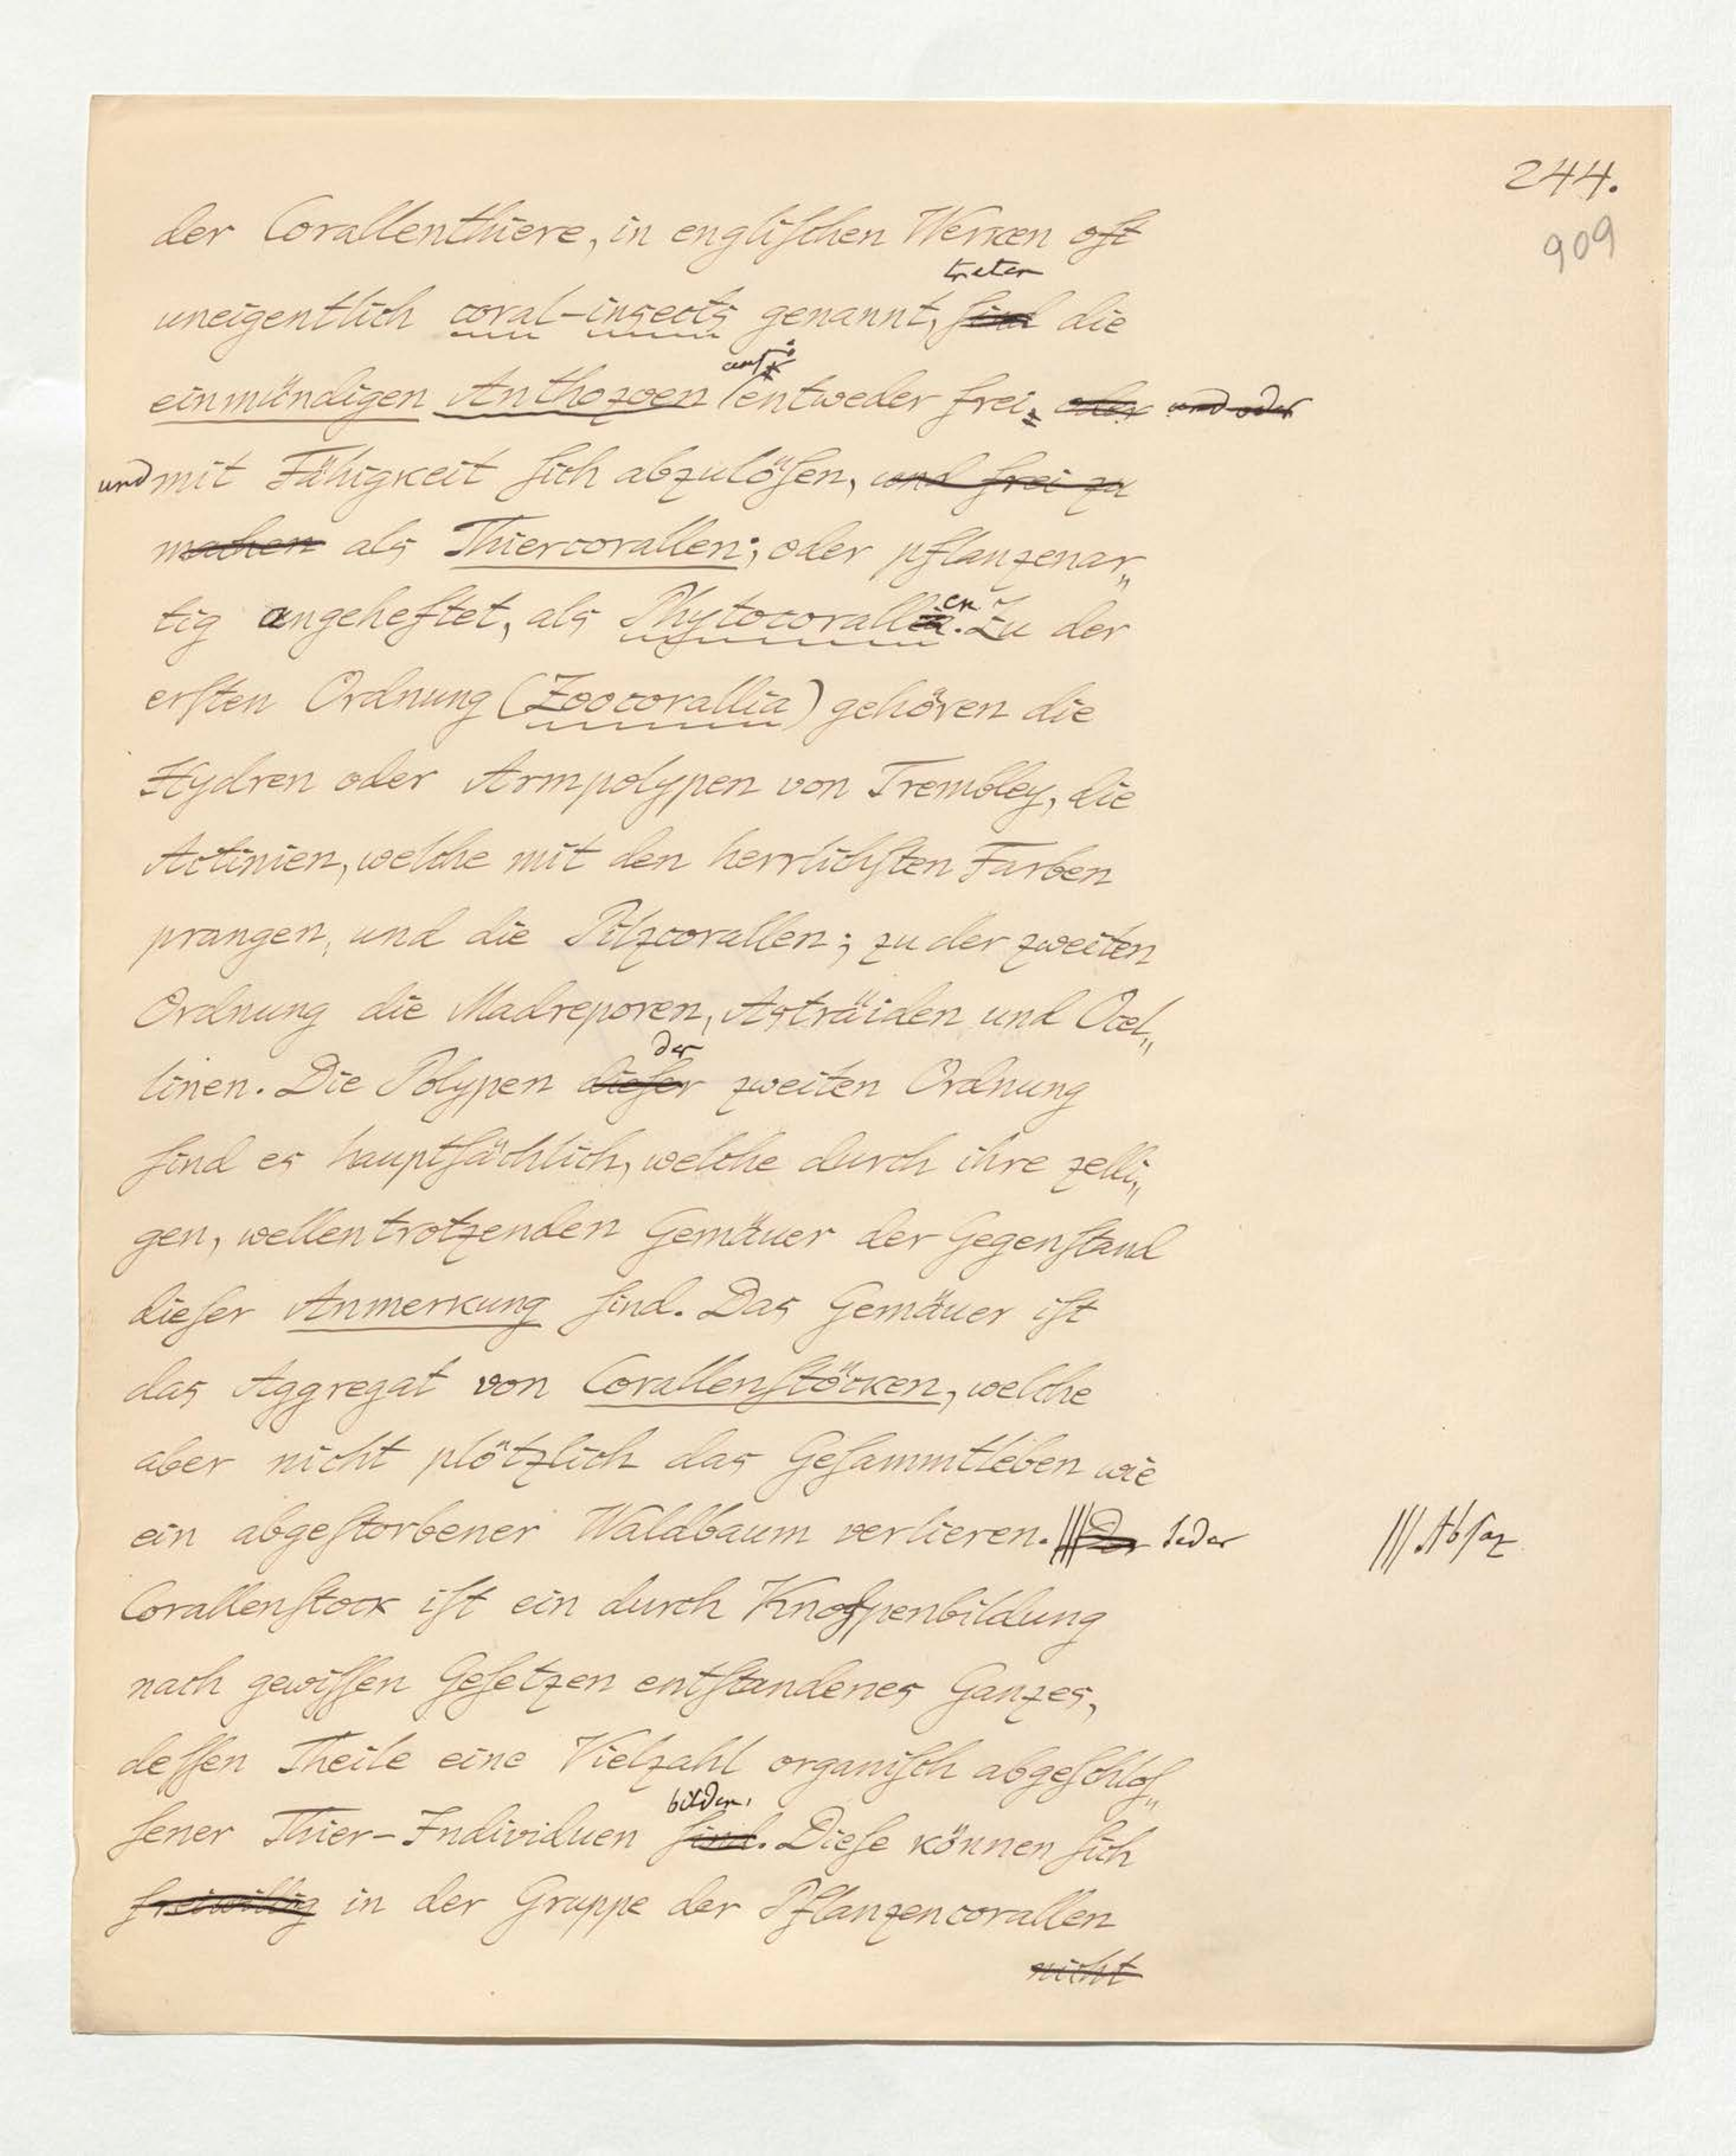 244.
909
der Corallenthiere, in engliſchen Werken oft
treten
uneigentlich coral-insects genannt, ſind die
auf:
einmündigen Anthozoen entweder frei, oder und oder
und mit Fähigkeit ſich abzulöſen, und frei zu
machen als Thiercorallen; oder pflanzenar„
en
tig angeheftet, als Phytocorallia. Zu der
erſten Ordnung (Zoocorallia) gehören die
Hydren oder Armpolypen von Trembley, die
Actinien, welche mit den herrlichſten Farben
prangen, und die Pilzcorallen; zu der zweiten
Ordnung die Madreporen, Asträiden und Ocel„
der
linen. Die Polypen dieſer zweiten Ordnung
ſind es hauptſächlich, welche durch ihre zelli„
gen, wellentrotzenden Gemäuer der Gegenſtand
dieſer Anmerkung ſind. Das Gemäuer iſt
das Aggregat von Corallenſtöcken, welche
aber nicht plötzlich das Geſammtleben wie
ein abgeſtorbener Waldbaum verlieren. ||| Der Jeder ||| Abſaz
Corallenſtock iſt ein durch Knoſpenbildung
nach gewiſſen Geſetzen entſtandenes Ganzes,
deſſen Theile eine Vielzahl organiſch abgeſchloſ„
bilden.
ſener Thier-Individuen ſind. Dieſe können ſich
freiwillig in der Gruppe der Pflanzencorallen
nicht